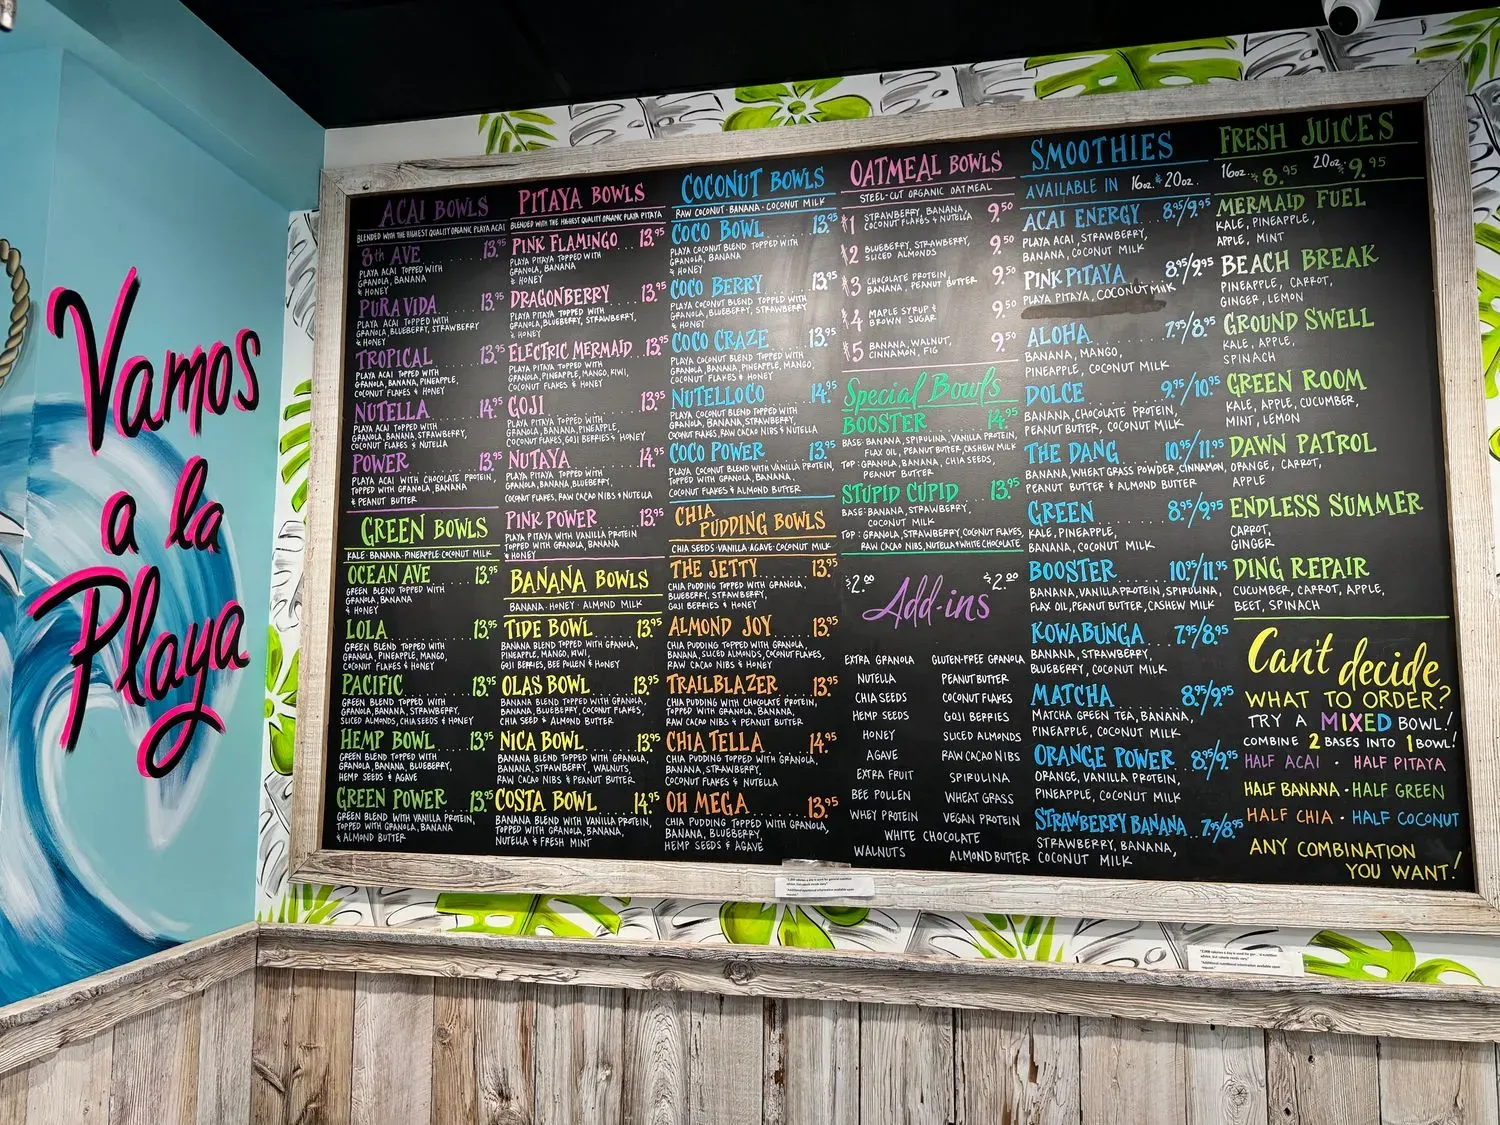 Vamos
a la
Playa
ACAI BOWLS
BLENDED WITH THE HIGHEST QUALITY ORGANIC PLAYA ACAI
8th AVE 13.95
PLAYA ACAI TOPPED WITH
GRANOLA, BANANA
& HONEY
PURA VIDA 13.95
PLAYA ACAI TOPPED WITH
GRANOLA, BLUEBERRY, STRAWBERRY
& HONEY
TROPICAL 13.95
PLAYA ACAI TOPPED WITH
GRANOLA, BANANA, PINEAPPLE,
COCONUT FLAKES & HONEY
NUTELLA 14.95
PLAYA ACAI TOPPED WITH
GRANOLA, BANANA, STRAWBERRY,
COCONUT FLAKES & NUTELLA
POWER 13.95
PLAYA ACAI WITH CHOCOLATE PROTEIN,
TOPPED WITH GRANOLA, BANANA
& PEANUT BUTTER
GREEN BOWLS
KALE · BANANA · PINEAPPLE · COCONUT MILK
OCEAN AVE 13.95
GREEN BLEND TOPPED WITH
GRANOLA, BANANA
& HONEY
LOLA 13.95
GREEN BLEND TOPPED WITH
GRANOLA, PINEAPPLE, MANGO,
COCONUT FLAKES & HONEY
PACIFIC 13.95
GREEN BLEND TOPPED WITH
GRANOLA, BANANA, STRAWBERRY,
SLICED ALMONDS, CHIA SEEDS & HONEY
HEMP BOWL 13.95
GREEN BLEND TOPPED WITH
GRANOLA, BANANA, BLUEBERRY,
HEMP SEEDS & AGAVE
GREEN POWER 13.95
GREEN BLEND WITH VANILLA PROTEIN,
TOPPED WITH GRANOLA, BANANA
& ALMOND BUTTER
PITAYA BOWLS
BLENDED WITH THE HIGHEST QUALITY ORGANIC PLAYA PITAYA
PINK FLAMINGO 13.95
PLAYA PITAYA TOPPED WITH
GRANOLA, BANANA
& HONEY
DRAGONBERRY 13.95
PLAYA PITAYA TOPPED WITH
GRANOLA, BLUEBERRY, STRAWBERRY,
& HONEY
ELECTRIC MERMAID 13.95
PLAYA PITAYA TOPPED WITH
GRANOLA, PINEAPPLE, MANGO, KIWI,
COCONUT FLAKES & HONEY
GOJI 13.95
PLAYA PITAYA TOPPED WITH
GRANOLA, BANANA, PINEAPPLE,
COCONUT FLAKES, GOJI BERRIES & HONEY
NUTAYA 14.95
PLAYA PITAYA TOPPED WITH
GRANOLA, BANANA, BLUEBERRY,
COCONUT FLAKES, RAW CACAO NIBS & NUTELLA
PINK POWER 13.95
PLAYA PITAYA WITH VANILLA PROTEIN
TOPPED WITH GRANOLA, BANANA
& HONEY
BANANA BOWLS
BANANA · HONEY · ALMOND MILK
TIDE BOWL 13.95
BANANA BLEND TOPPED WITH GRANOLA,
PINEAPPLE, MANGO, KIWI,
GOJI BERRIES, BEE POLLEN & HONEY
OLAS BOWL 13.95
BANANA BLEND TOPPED WITH GRANOLA,
BANANA, BLUEBERRY, COCONUT FLAKES,
CHIA SEED & ALMOND BUTTER
NICA BOWL 13.95
BANANA BLEND TOPPED WITH GRANOLA,
BANANA, STRAWBERRY, WALNUTS,
RAW CACAO NIBS & PEANUT BUTTER
COSTA BOWL 14.95
BANANA BLEND WITH VANILLA PROTEIN,
TOPPED WITH GRANOLA, BANANA,
NUTELLA & FRESH MINT
COCONUT BOWLS
RAW COCONUT · BANANA · COCONUT MILK
COCO BOWL 13.95
PLAYA COCONUT BLEND TOPPED WITH
GRANOLA, BANANA
& HONEY
COCO BERRY 13.95
PLAYA COCONUT BLEND TOPPED WITH
GRANOLA, BLUEBERRY, STRAWBERRY,
& HONEY
COCO CRAZE 13.95
PLAYA COCONUT BLEND TOPPED WITH
GRANOLA, BANANA, PINEAPPLE, MANGO,
COCONUT FLAKES & HONEY
NUTELLOCO 14.95
PLAYA COCONUT BLEND TOPPED WITH
GRANOLA, BANANA, STRAWBERRY,
COCONUT FLAKES, RAW CACAO NIBS & NUTELLA
COCO POWER 13.95
PLAYA COCONUT BLEND WITH VANILLA PROTEIN,
TOPPED WITH GRANOLA, BANANA,
COCONUT FLAKES & ALMOND BUTTER
CHIA
PUDDING BOWLS
CHIA SEEDS · VANILLA · AGAVE · COCONUT MILK
THE JETTY 13.95
CHIA PUDDING TOPPED WITH GRANOLA,
BLUEBERRY, STRAWBERRY,
GOJI BERRIES & HONEY
ALMOND JOY 13.95
CHIA PUDDING TOPPED WITH GRANOLA,
BANANA, SLICED ALMONDS, COCONUT FLAKES,
RAW CACAO NIBS & HONEY
TRAILBLAZER 13.95
CHIA PUDDING WITH CHOCOLATE PROTEIN,
TOPPED WITH GRANOLA, BANANA,
RAW CACAO NIBS & PEANUT BUTTER
CHIA TELLA 14.95
CHIA PUDDING TOPPED WITH GRANOLA,
BANANA, STRAWBERRY,
COCONUT FLAKES & NUTELLA
OH MEGA 13.95
CHIA PUDDING TOPPED WITH GRANOLA,
BANANA, BLUEBERRY,
HEMP SEEDS & AGAVE
OATMEAL BOWLS
STEEL-CUT ORGANIC OATMEAL
#1 STRAWBERRY, BANANA, 9.50
COCONUT FLAKES & NUTELLA
#2 BLUEBERRY, STRAWBERRY, 9.50
SLICED ALMONDS
#3 CHOCOLATE PROTEIN, 9.50
BANANA, PEANUT BUTTER
#4 MAPLE SYRUP & 9.50
BROWN SUGAR
#5 BANANA, WALNUT, 9.50
CINNAMON, FIG
Special Bowls
BOOSTER 14.95
BASE: BANANA, SPIRULINA, VANILLA PROTEIN,
FLAX OIL, PEANUT BUTTER, CASHEW MILK
TOP: GRANOLA, BANANA, CHIA SEEDS,
PEANUT BUTTER
STUPID CUPID 13.95
BASE: BANANA, STRAWBERRY,
COCONUT MILK
TOP: GRANOLA, STRAWBERRY, COCONUT FLAKES,
RAW CACAO NIBS, NUTELLA & WHITE CHOCOLATE
$2.00 Add-ins $2.00
EXTRA GRANOLA GLUTEN-FREE GRANOLA
NUTELLA PEANUT BUTTER
CHIA SEEDS COCONUT FLAKES
HEMP SEEDS GOJI BERRIES
HONEY SLICED ALMONDS
AGAVE RAW CACAO NIBS
EXTRA FRUIT SPIRULINA
BEE POLLEN WHEAT GRASS
WHEY PROTEIN VEGAN PROTEIN
WHITE CHOCOLATE
WALNUTS ALMOND BUTTER
SMOOTHIES
AVAILABLE IN 16oz. & 20oz.
ACAI ENERGY 8.95/9.95
PLAYA ACAI, STRAWBERRY,
BANANA, COCONUT MILK
PINK PITAYA 8.95/9.95
PLAYA PITAYA, COCONUT MILK
ALOHA 7.95/8.95
BANANA, MANGO,
PINEAPPLE, COCONUT MILK
DOLCE 9.95/10.95
BANANA, CHOCOLATE PROTEIN,
PEANUT BUTTER, COCONUT MILK
THE DANG 10.95/11.95
BANANA, WHEAT GRASS POWDER, CINNAMON,
PEANUT BUTTER & ALMOND BUTTER
GREEN 8.95/9.95
KALE, PINEAPPLE,
BANANA, COCONUT MILK
BOOSTER 10.95/11.95
BANANA, VANILLA PROTEIN, SPIRULINA,
FLAX OIL, PEANUT BUTTER, CASHEW MILK
KOWABUNGA 7.95/8.95
BANANA, STRAWBERRY,
BLUEBERRY, COCONUT MILK
MATCHA 8.95/9.95
MATCHA GREEN TEA, BANANA,
PINEAPPLE, COCONUT MILK
ORANGE POWER 8.95/9.95
ORANGE, VANILLA PROTEIN,
PINEAPPLE, COCONUT MILK
STRAWBERRY BANANA 7.95/8.95
STRAWBERRY, BANANA,
COCONUT MILK
FRESH JUICES
16oz. $8.95 20oz. $9.95
MERMAID FUEL
KALE, PINEAPPLE,
APPLE, MINT
BEACH BREAK
PINEAPPLE, CARROT,
GINGER, LEMON
GROUND SWELL
KALE, APPLE,
SPINACH
GREEN ROOM
KALE, APPLE, CUCUMBER,
MINT, LEMON
DAWN PATROL
ORANGE, CARROT,
APPLE
ENDLESS SUMMER
CARROT,
GINGER
DING REPAIR
CUCUMBER, CARROT, APPLE,
BEET, SPINACH
Can't decide
WHAT TO ORDER?
TRY A MIXED BOWL!
COMBINE 2 BASES INTO 1 BOWL!
HALF ACAI · HALF PITAYA
HALF BANANA · HALF GREEN
HALF CHIA · HALF COCONUT
ANY COMBINATION
YOU WANT!